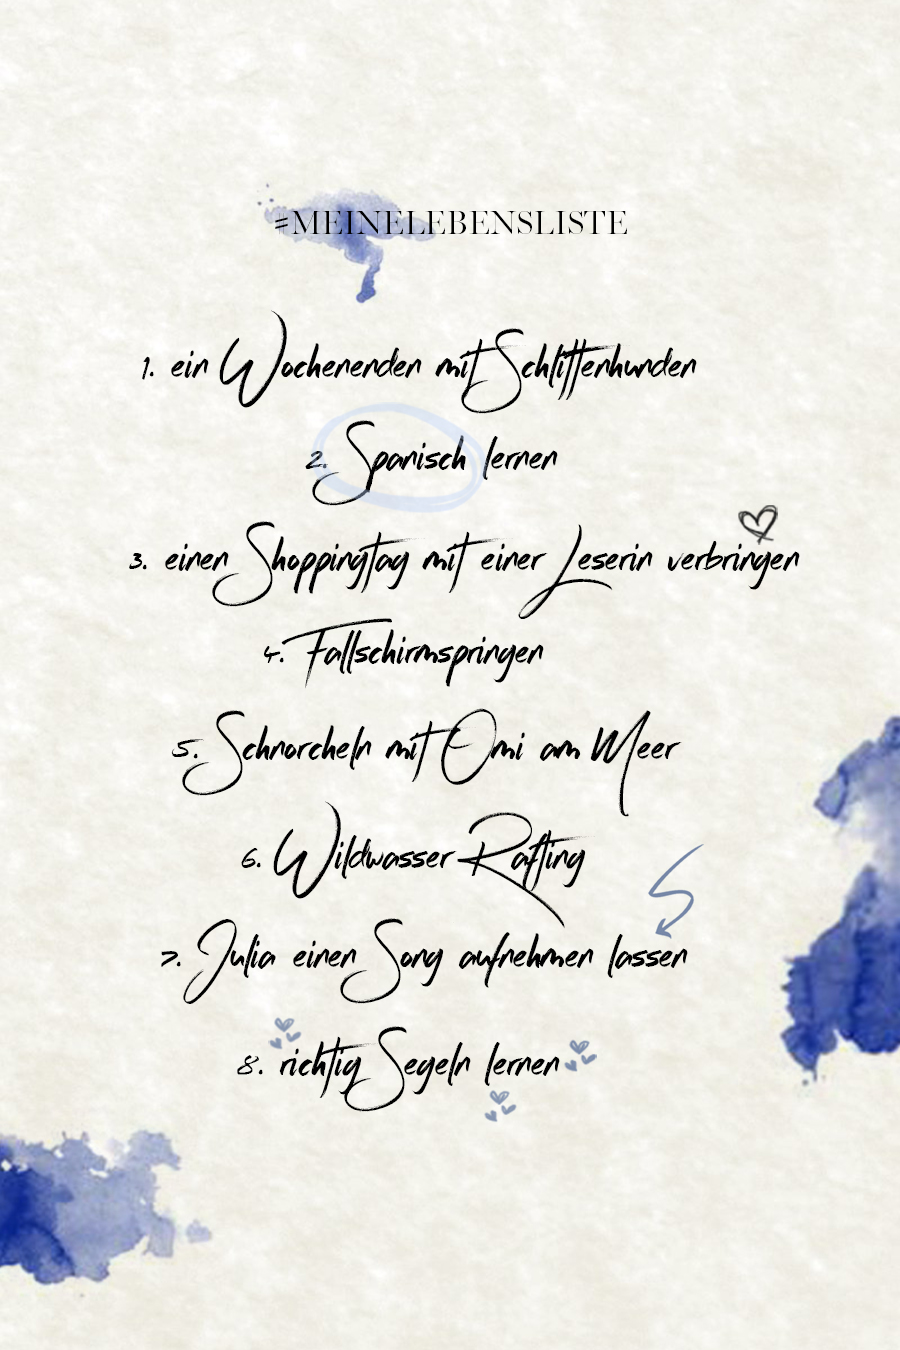 #MEINELEBENSLISTE
1. ein Wochenenden mit Schlittenhunden
2. Spanisch lernen
3. einen Shoppingtag mit einer Leserin verbringen
4. Fallschirmspringen
5. Schnorcheln mit Omi am Meer
6. Wildwasser Rafting
7. Julia einen Song aufnehmen lassen
8. richtig Segeln lernen